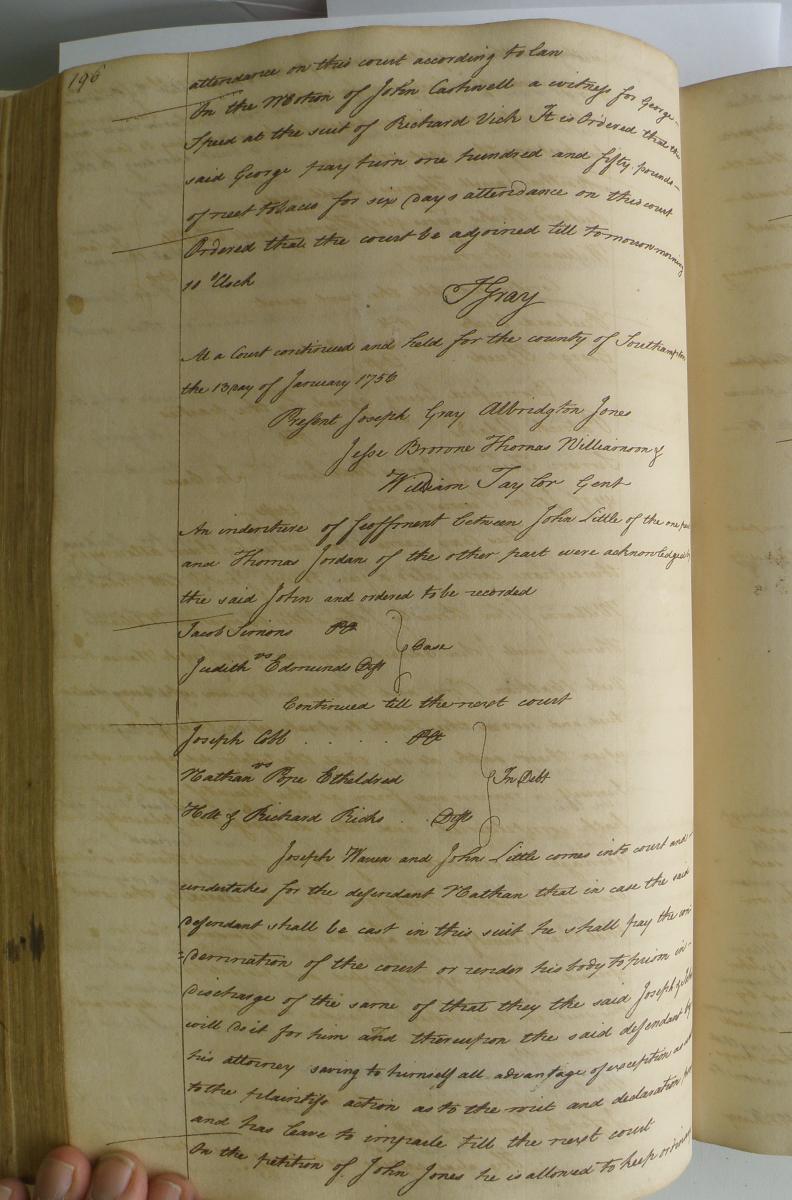 196
attendance on this court according to law
On the Motion of John Cashwell a witness for George
Speed at the suit of Richard Vick It is Ordered that the
said George pay him one hundred and fifty pounds
of neet tobacco for six Days attendance on this court
Ordered that the court be adjoined till tomorrow morning
10 Clock
J Gray
At a Court continued and held for the county of Southampton
the 13 Day of January 1756
Present Joseph Gray Albridgton Jones
Jesse Browne Thomas Williamson &
William Taylor Gent
An indenture of feoffment between John Little of the one part
and Thomas Jordan of the other part were acknowledged by
the said John and ordered to be recorded
Jacob Simons Plt
vs } Case
Judith Edmunds Deft
Continued till the next court
Joseph Cobb . . . . . Plt
vs
Nathan Pope Etheldred } In Debt
Holt & Richard Ricks . . Defts
Joseph Warren and John Little comes into court and
undertakes for the defendant Nathan that in case the said
Defendant shall be cast in this suit he shall pay the con
=demnation of the court or render his body to prison in
Discharge of the same of that they the said Joseph & John
will do it for him and thereupon the said defendant by
his attorney saving to himself all advantage of exception as well
to the plaintifs action as to the writ and declaration
and has leave to imparle till the next court
On the petition of John Jones he is allowed to keep ordinary